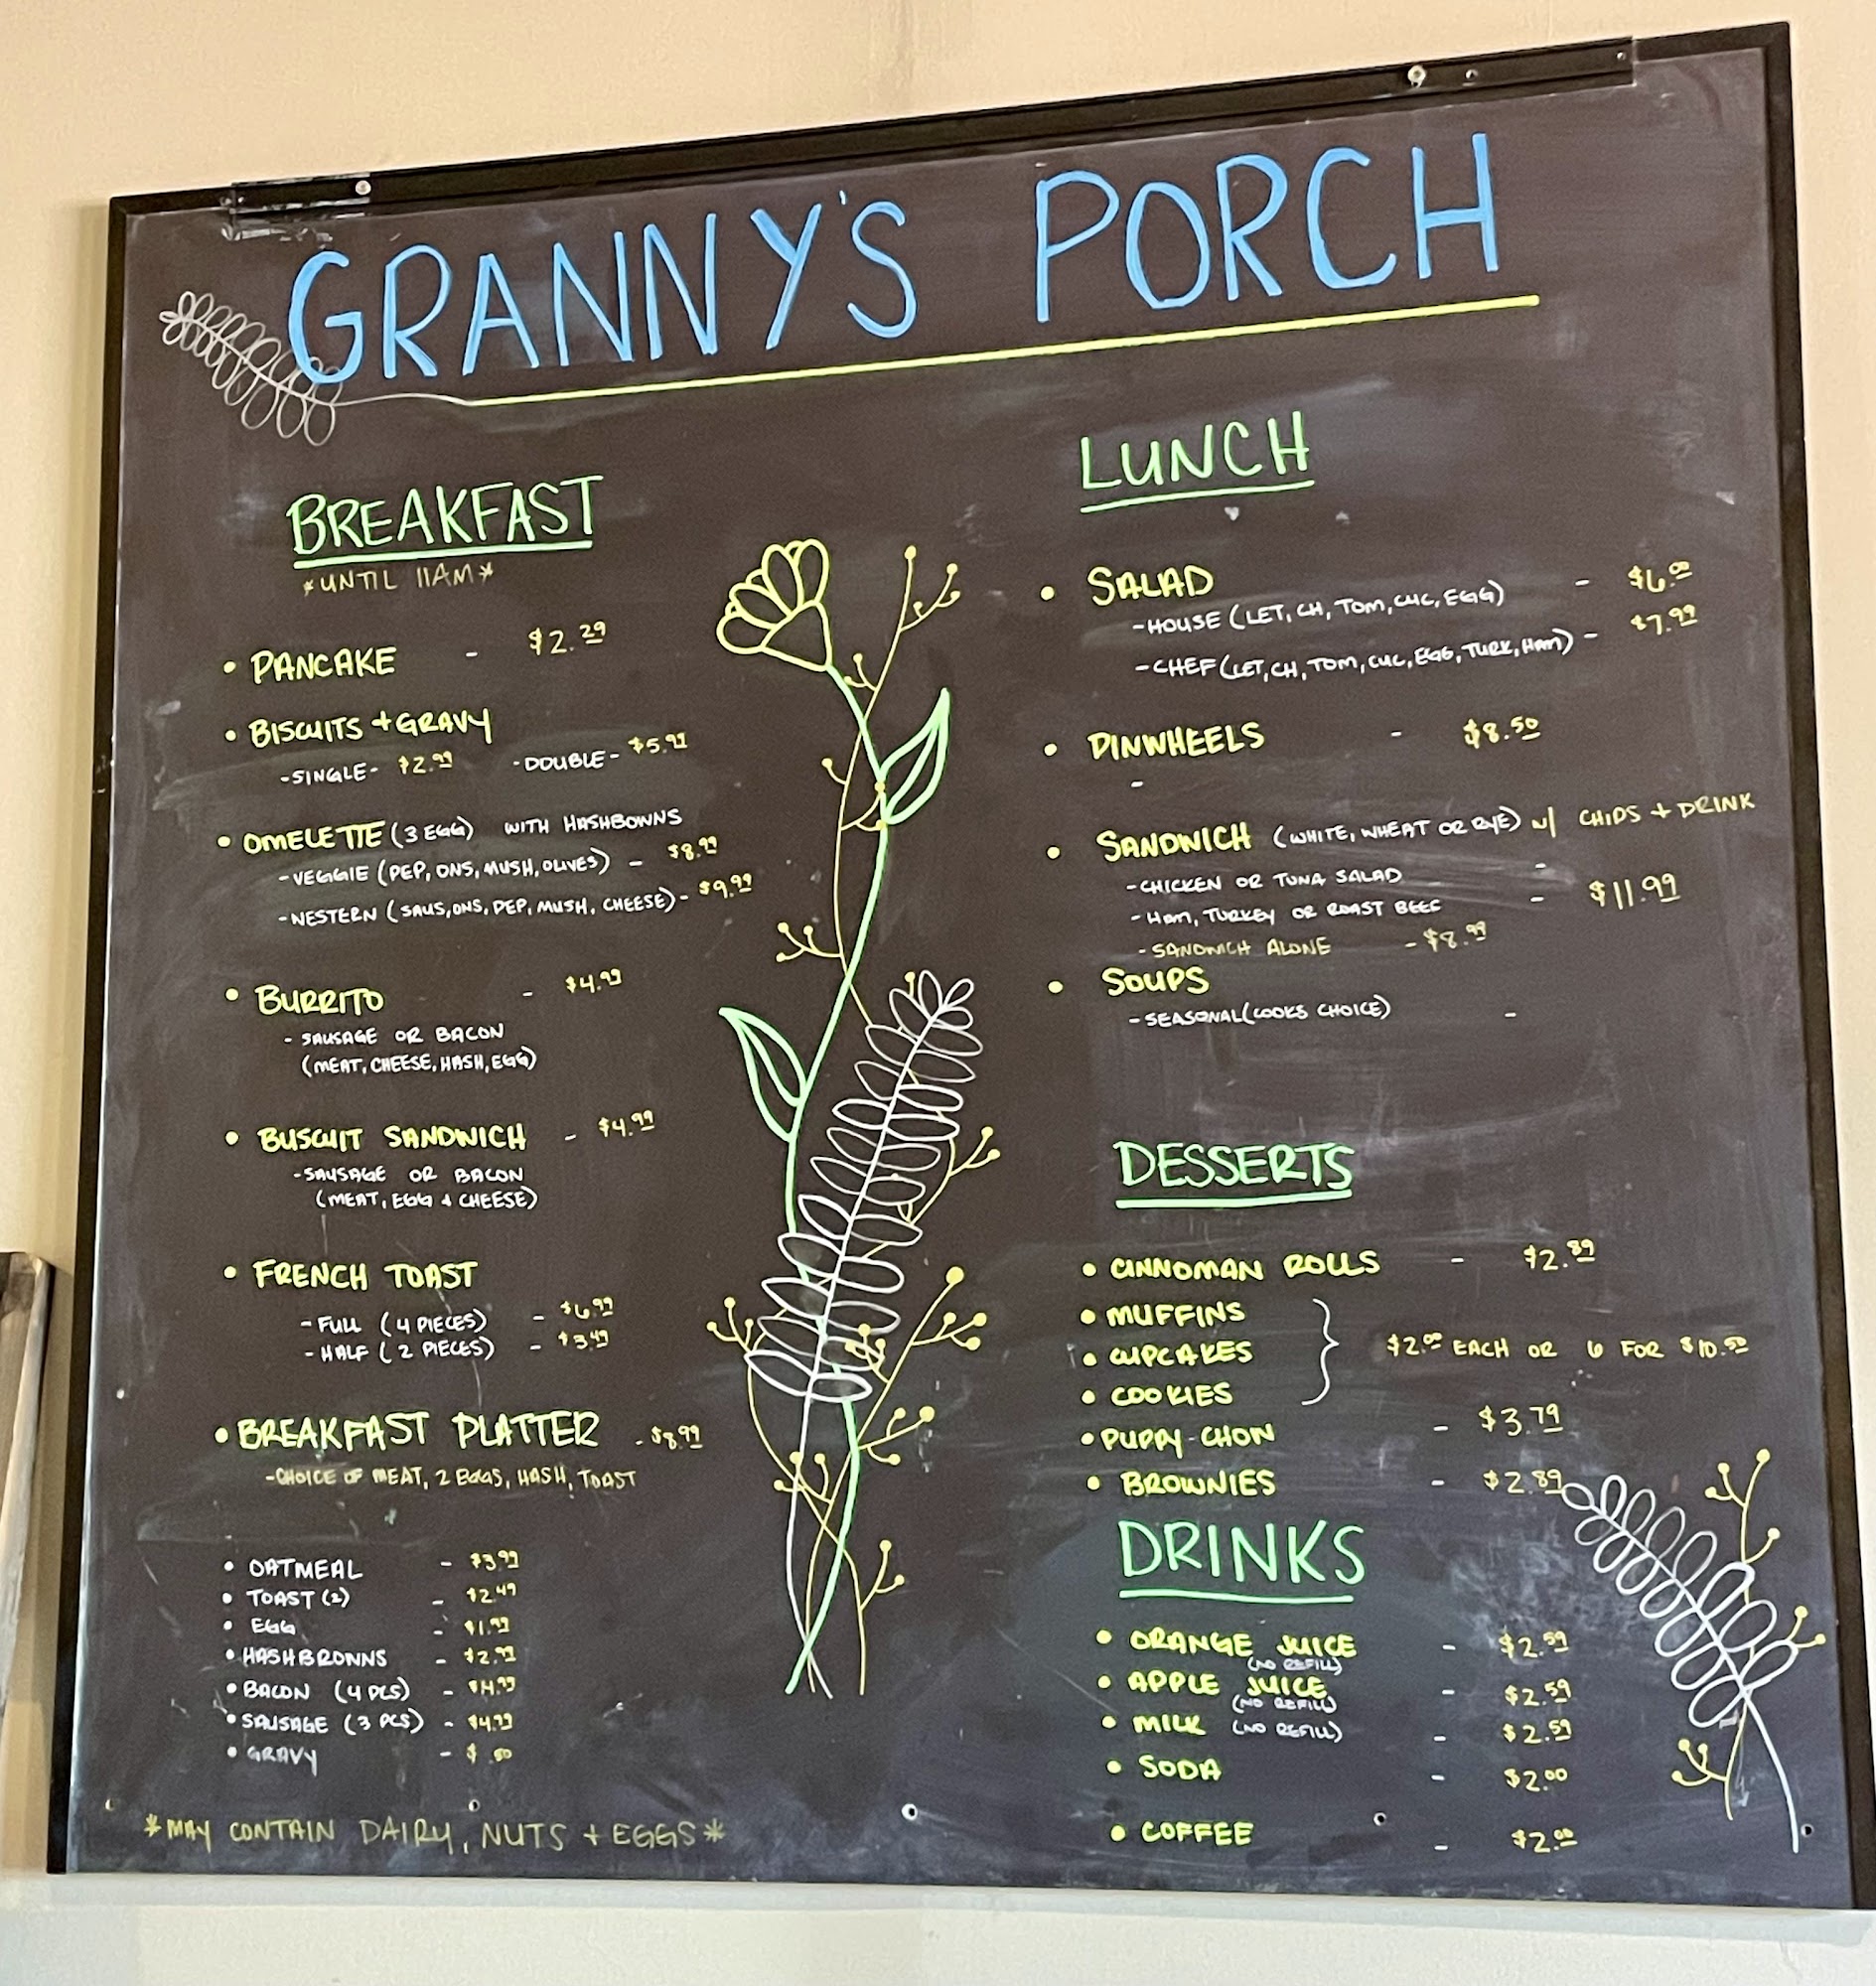 GRANNY'S PORCH
BREAKFAST
*UNTIL 11AM*
• PANCAKE - $2.29
• BISCUITS + GRAVY
-SINGLE- $2.99 -DOUBLE- $5.99
• OMELETTE (3 EGG) WITH HASHBOWNS
-VEGGIE (PEP, ONS, MUSH, OLIVES) - $8.99
-WESTERN (SAUS, ONS, PEP, MUSH, CHEESE) - $9.99
• BURRITO - $4.99
- SAUSAGE OR BACON
(MEAT, CHEESE, HASH, EGG)
• BUSCUIT SANDWICH - $4.99
-SAUSAGE OR BACON
(MEAT, EGG + CHEESE)
• FRENCH TOAST
- FULL (4 PIECES) - $6.99
- HALF (2 PIECES) - $3.49
• BREAKFAST PLATTER - $8.99
-CHOICE OF MEAT, 2 EGGS, HASH, TOAST
• OATMEAL - $3.99
• TOAST (2) - $2.49
• EGG - $1.99
• HASHBROWNS - $2.99
• BACON (4 PCS) - $4.99
• SAUSAGE (3 PCS) - $4.99
• GRAVY - $ .50
*MAY CONTAIN DAIRY, NUTS + EGGS*
LUNCH
• SALAD
-HOUSE (LET, CH, TOM, CUC, EGG) - $6.00
-CHEF (LET, CH, TOM, CUC, EGG, TURK, HAM) - $7.99
• PINWHEELS - $8.50
-
• SANDWICH (WHITE, WHEAT OR RYE) w/ CHIPS + DRINK
-CHICKEN OR TUNA SALAD -
- HAM, TURKEY OR ROAST BEEF - $11.99
- SANDWICH ALONE - $8.99
• SOUPS
-SEASONAL (COOKS CHOICE) -
DESSERTS
• CINNOMAN ROLLS - $2.89
• MUFFINS
• CUPCAKES } $2.00 EACH OR 6 FOR $10.50
• COOKIES
• PUPPY-CHOW - $3.79
• BROWNIES - $2.89
DRINKS
• ORANGE JUICE - $2.59
(NO REFILL)
• APPLE JUICE - $2.59
(NO REFILL)
• MILK (NO REFILL) - $2.59
• SODA - $2.00
• COFFEE - $2.00